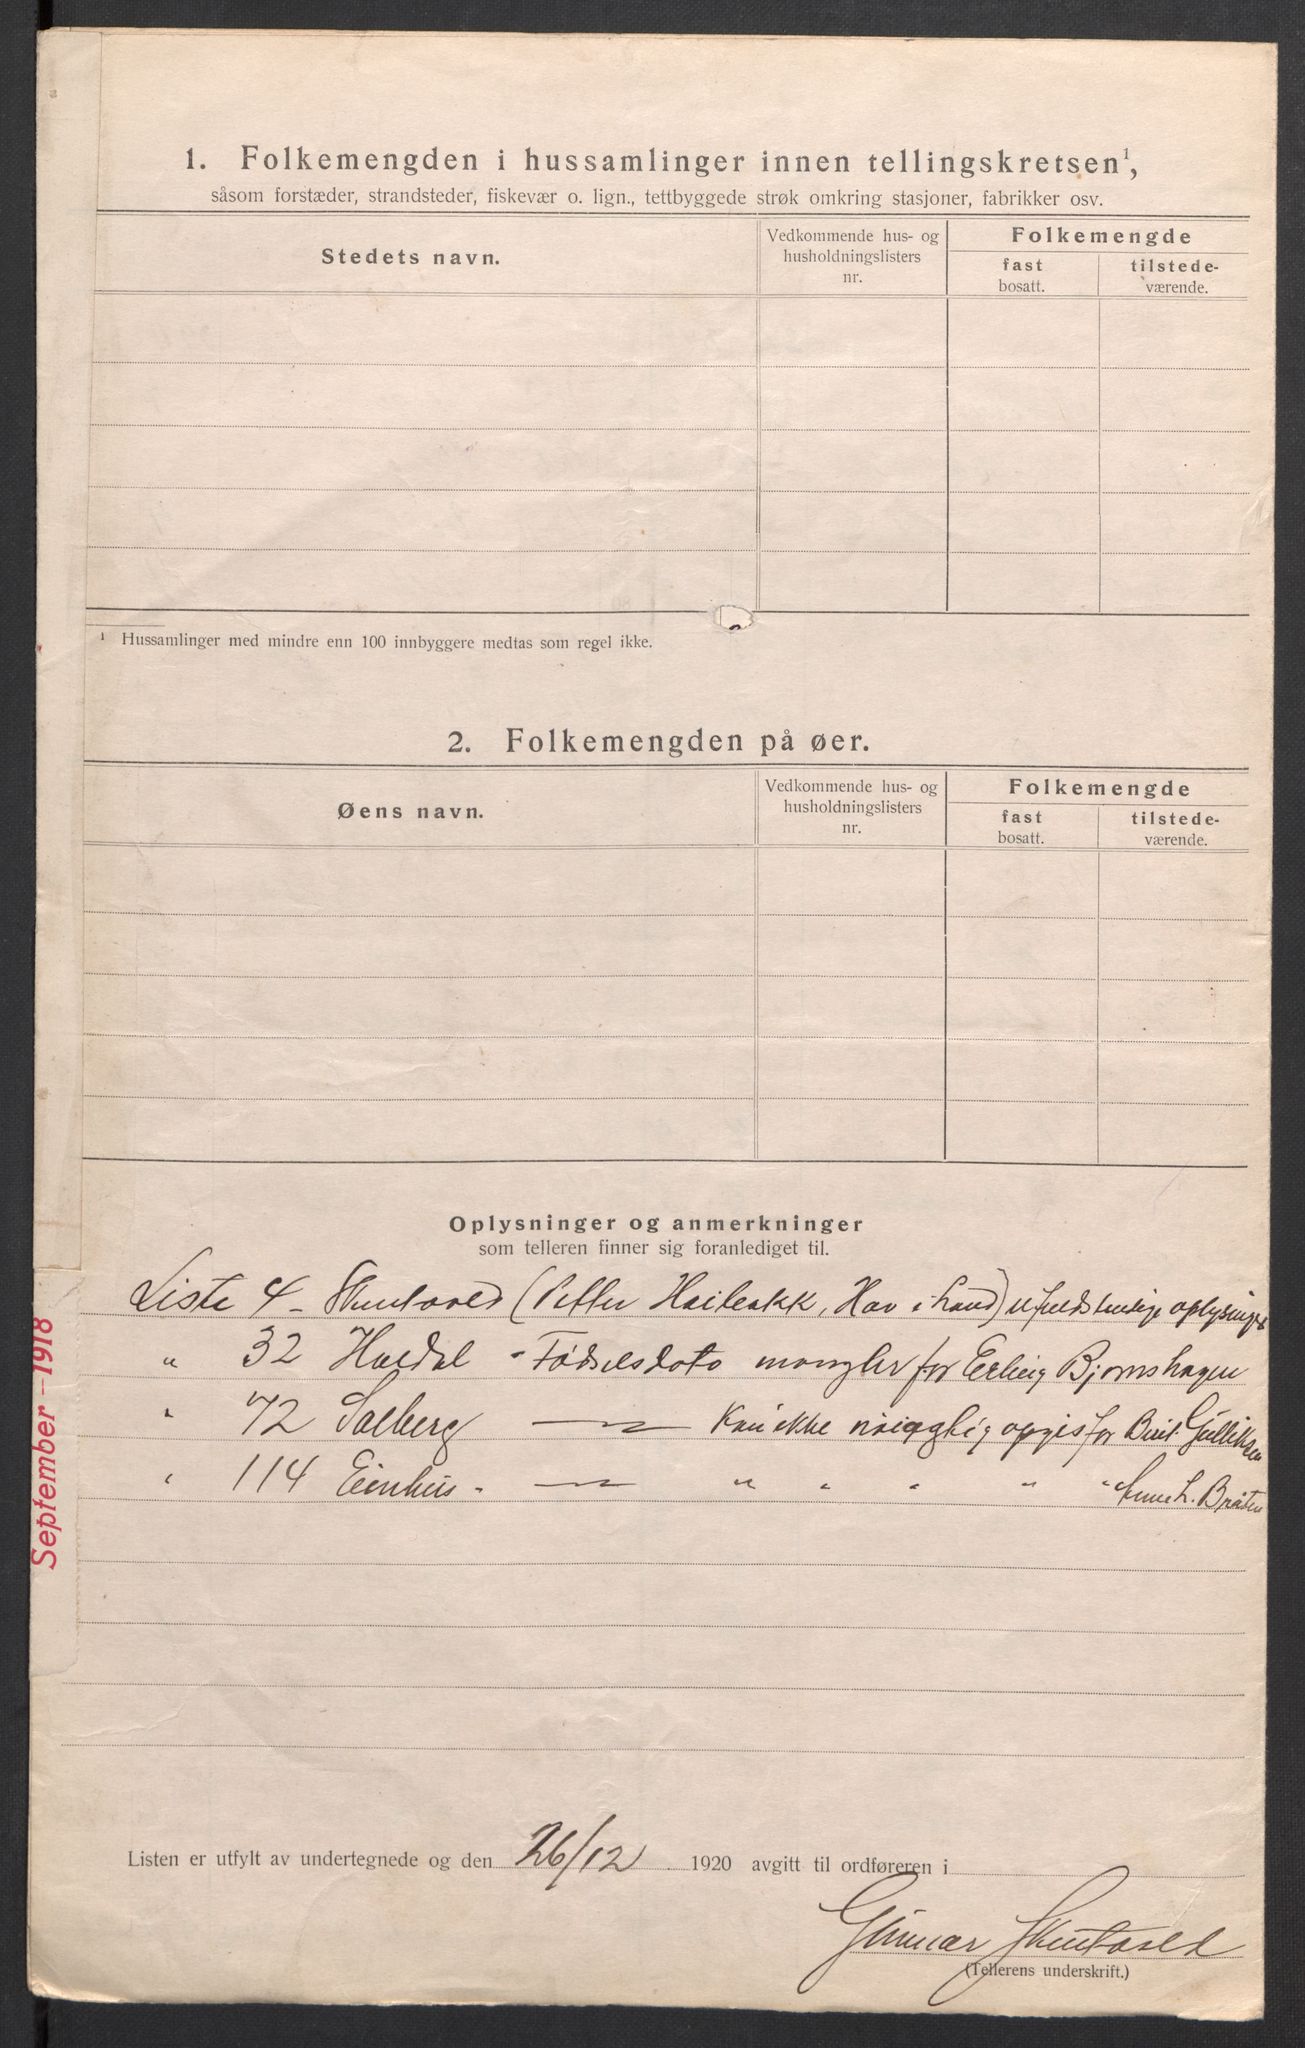 1. Folkemengden i hussamlinger innen tellingskretsen¹,
såsom forstæder, strandsteder, fiskevær o. lign., tettbyggede strøk omkring stasjoner, fabrikker osv.
Stedets navn.
Vedkommende hus- og
husholdningslisters
nr.
Folkemengde
fast
bosatt.
tilstede-
værende.
¹ Hussamlinger med mindre enn 100 innbyggere medtas som regel ikke.
2. Folkemengden på øer.
Øens navn.
Vedkommende hus- og
husholdningslisters
nr.
Folkemengde
fast
bosatt.
tilstede-
værende.
Oplysninger og anmerkninger
som telleren finner sig foranlediget til.
Liste 4 - Skuntveld (Petter i Land) ufuldstendige oplysninger
" 32 - Fødselsdato mangler for Erling Bjørnshagen
" 72 Solberg — Kan ikke nøiagtig opgis for Gulliksen
" 114 Einhus - — " " " " " L. Bråten
September - 1918
Listen er utfylt av undertegnede og den 26/12 1920 avgitt til ordføreren i
Gunnar
(Tellerens underskrift.)